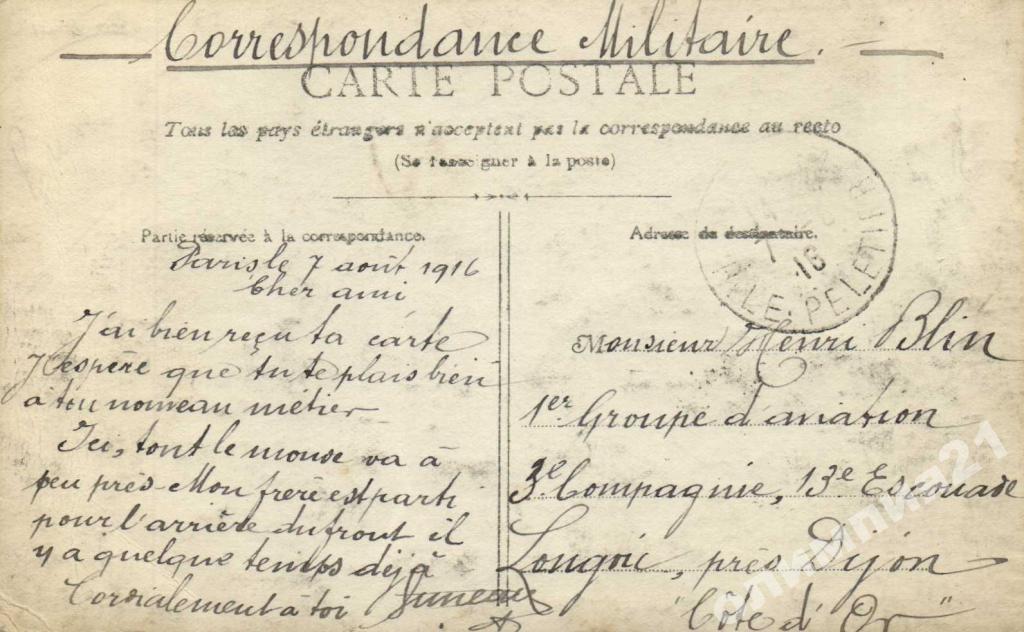 Correspondance Militaire.
CARTE POSTALE
Tous les pays étrangers n'acceptent pas la correspondance au recto
(Se renseigner à la poste)
Partie réservée à la correspondance.
Paris le 7 août 1916
Cher ami
J'ai bien reçu ta carte
J'espère que tu te plais bien
à ton nouveau métier
Ici, tout le monde va à
peu près Mon frère est parti
pour l'arrière du front il
y a quelque temps déjà
Cordialement à toi
Adresse du destinataire.
7
16
LE PELETIER
Monsieur Henri Blin
1er Groupe d'aviation
3e Compagnie, 13e Escouade
Longvic, près Dijon
"Côte d'Or"
олимпиа21